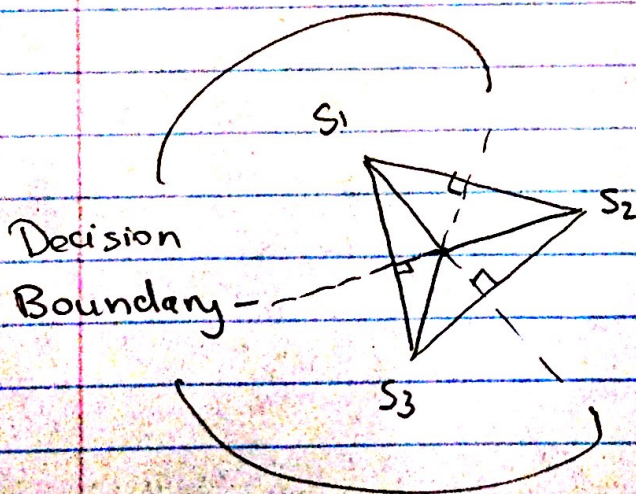 S1
S2
Decision
Boundary
S3